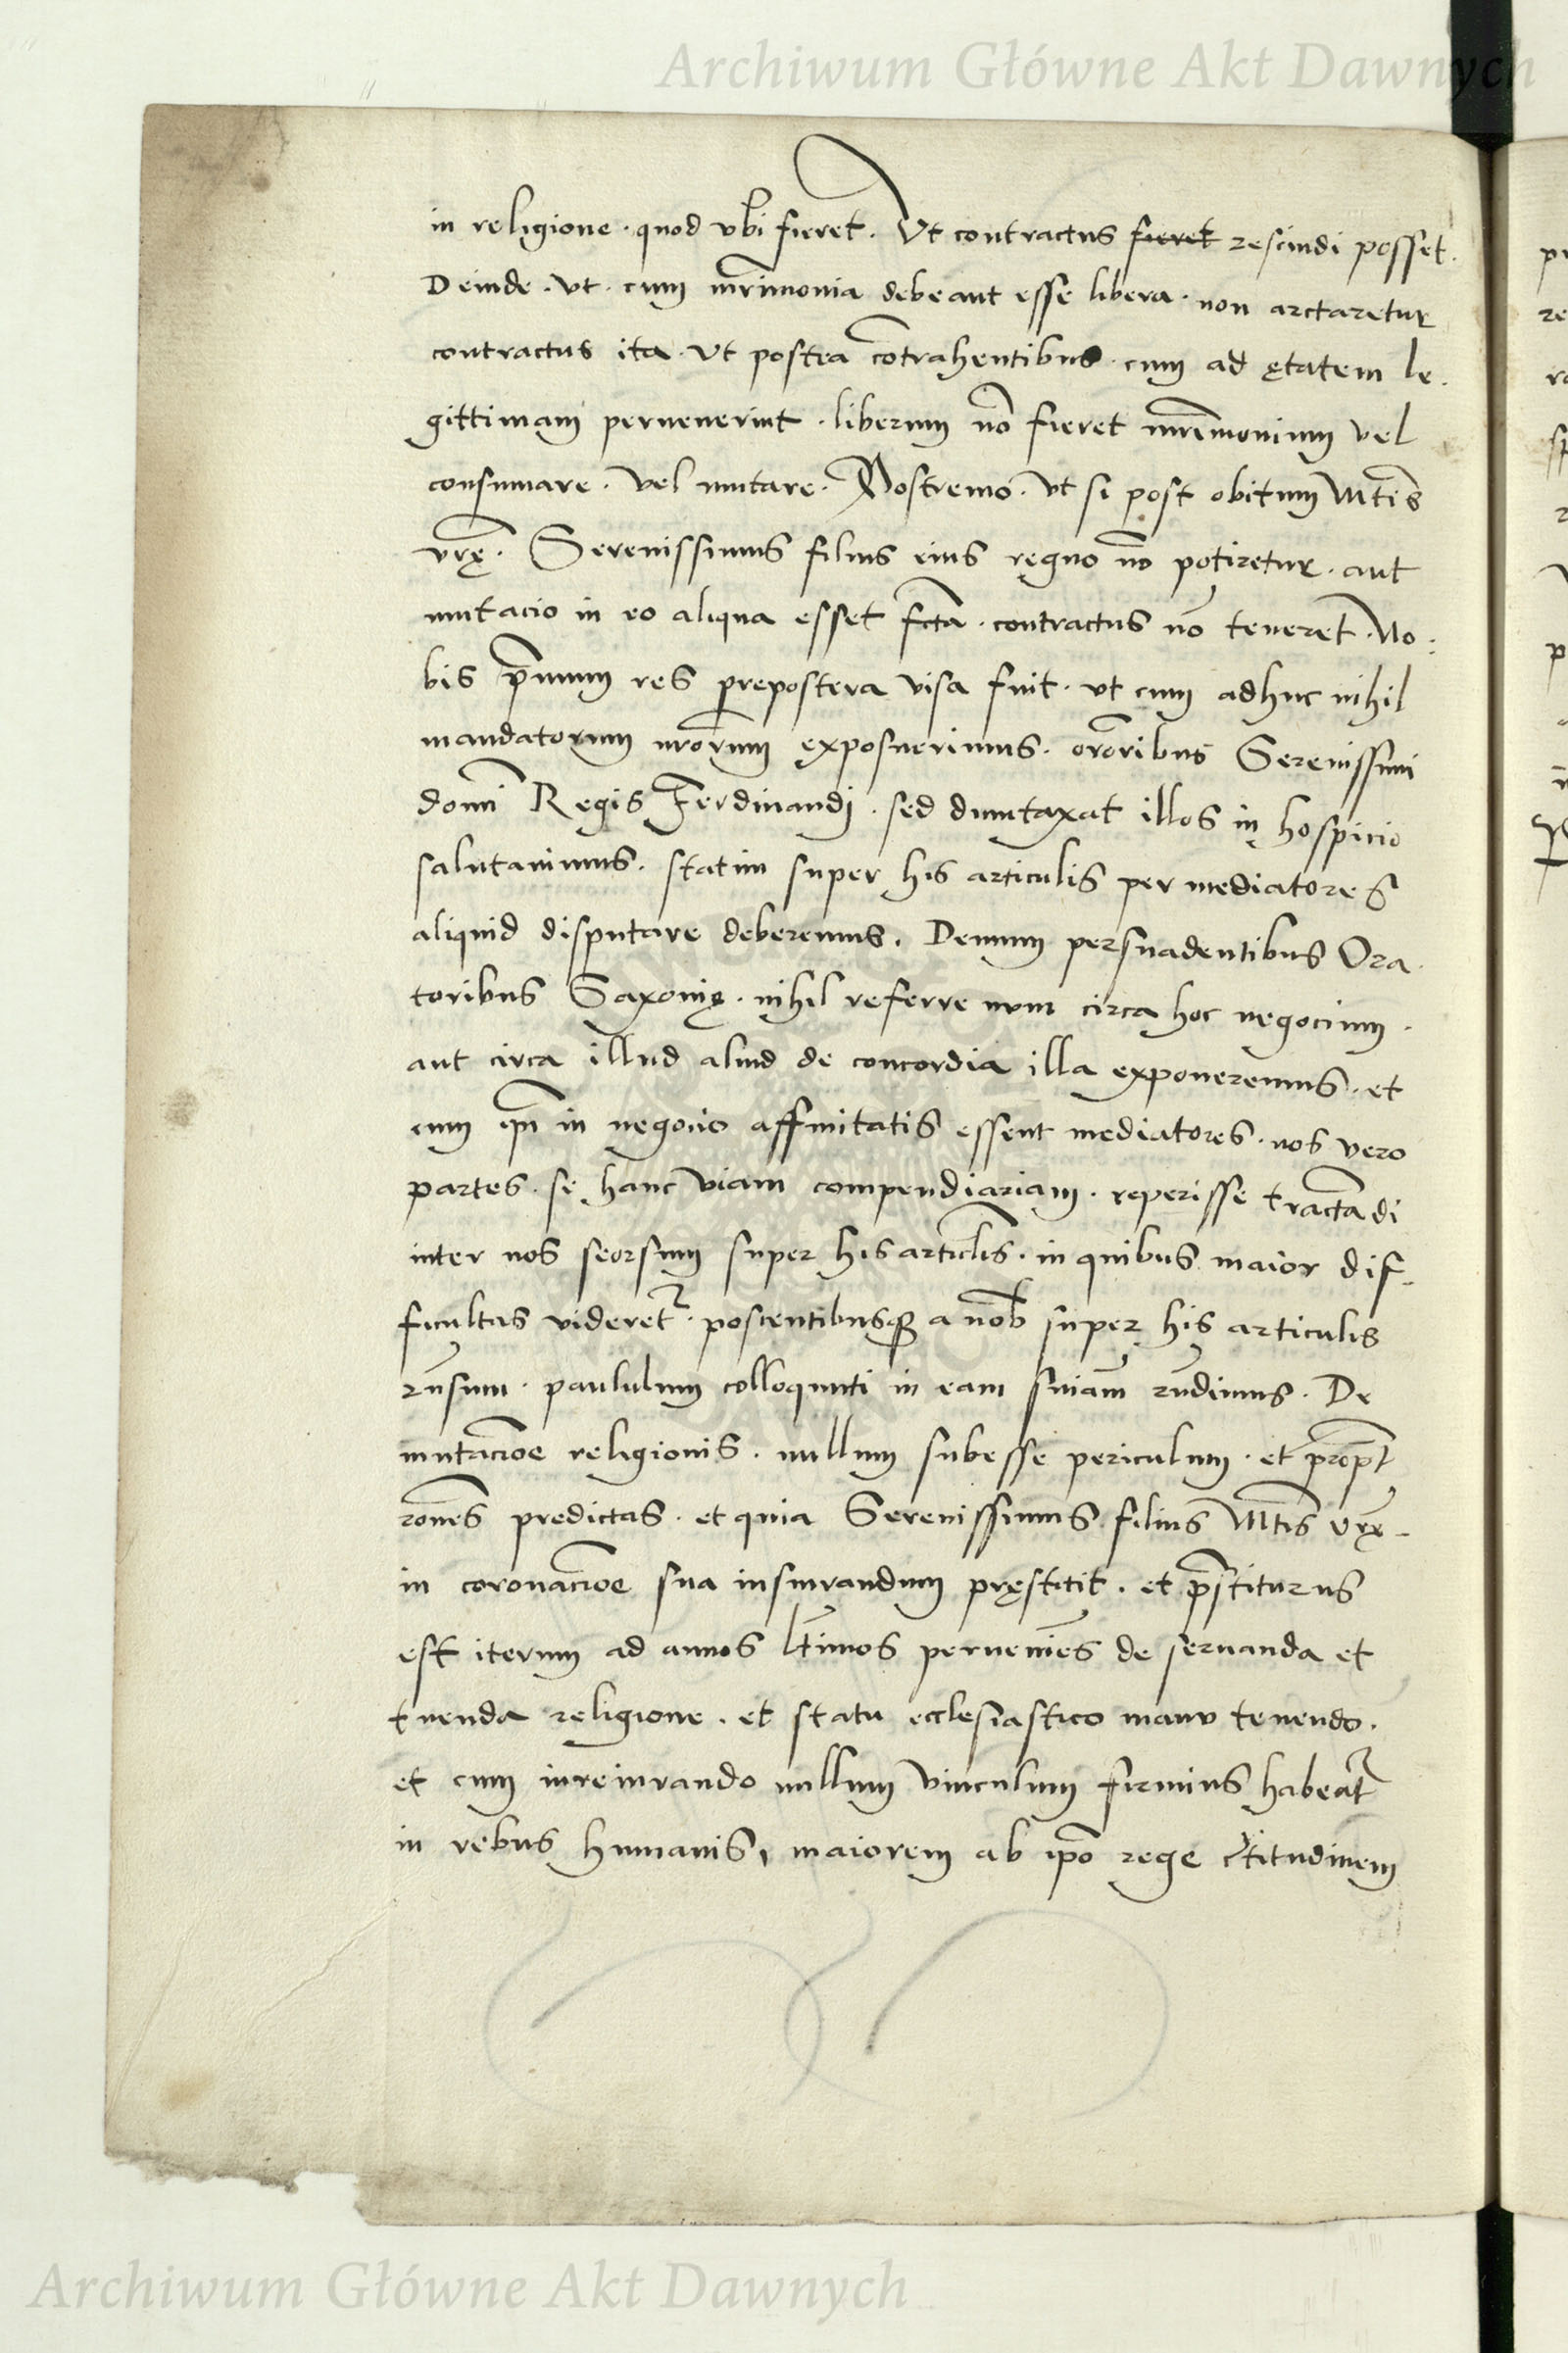 Archiwum Główne Akt Dawnych
in religione · quod vbi fieret. Vt contractus fieret rescindi posset.
Deinde · vt · cum mr̃imonia debeant esse libera · non arctaretur
contractus ita · Vt postea cõtrahentibus · cum ad ętatem le.
gittimam peruenerint · liberum nõ fieret mr̃imonium vel
consumare · vel mutare · Postremo · vt si post obitum Mtis
vrę̃ · Serenissimus filius eius regno nõ potiretur · aut
mutacio in eo aliqua esset fcta · contractus nõ teneret · No:
bis p̃mum res prepostera visa fuit · vt cum adhuc nihil
mandatorum nr̃orum exposuerimus · orõribus Serenissimi
domĩ Regis Ferdinandi · sed dumtaxat illos in hospicio
salutauimus · statim super his articulis per mediatores
aliquid disputare deberemus. Demum persuadentibus Ora.
toribus Saxonię · nihil referre num circa hoc negocium ·
aut circa illud aliud de concordia illa exponeremus · et
cum ip̃i in negocio affinitatis essent mediatores · nos vero
partes · se hanc viam compendiariam · reperisse tractãdi
inter nos seorsum super his articlis · in quibus maior dif.
ficultas videret² · poscentibusqꝫ a nob̃ super his articulis
rñsum · paululum colloqunti in eam sñiam rñdimus · De
mutaciõe religionis · nullum subesse periculum · et propt̃
rones predictas · et quia Serenissimus filius Mtis vrę̃ -
in coronaciõe sua iusiurandum pręstitit · et p̃stiturus
est iterum ad annos lt̃imos perueniẽs de seruanda et
tuenda religione · et statu ecclesiastico manu tenendo.
et cum iureiurando nullum vinculum firmius habeat²
in rebus humanis, maiorem ab ip̃o rege c̃titudinem
Archiwum Główne Akt Dawnych